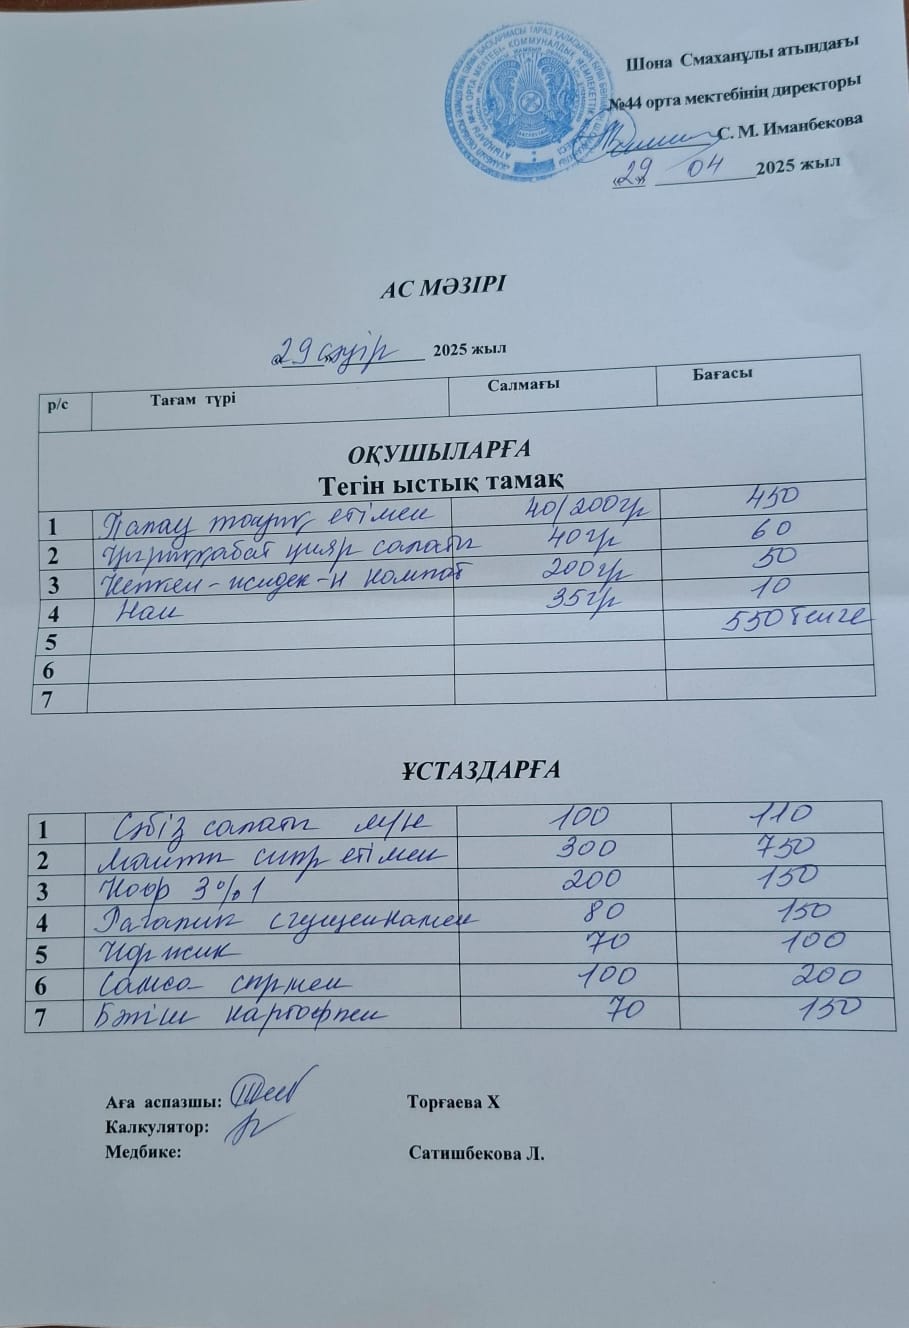 Шона Смаханұлы атындағы
№44 орта мектебінің директоры
С. М. Иманбекова
«29» 04 2025 жыл
АС МӘЗІРІ
«29» сәуір 2025 жыл
р/с Тағам түрі Салмағы Бағасы
ОҚУШЫЛАРҒА
Тегін ыстық тамақ
1 Палау тауық етімен 40/200гр 450
2 қияр салаты 40гр 60
3 Кепкен-жидек-н компот 200гр 50
4 Нан 35гр 10
5 550 теңге
6
7
ҰСТАЗДАРҒА
1 Сәбіз салаты 100 110
2 Манты сиыр етімен 300 750
3 300 150
4 Рагалик сгущенкамен 80 150
5 Коржик 70 100
6 Самса 100 200
7 Бәтіш картофпен 70 150
Аға аспазшы: Торғаева Х
Калкулятор:
Медбике: Сатишбекова Л.